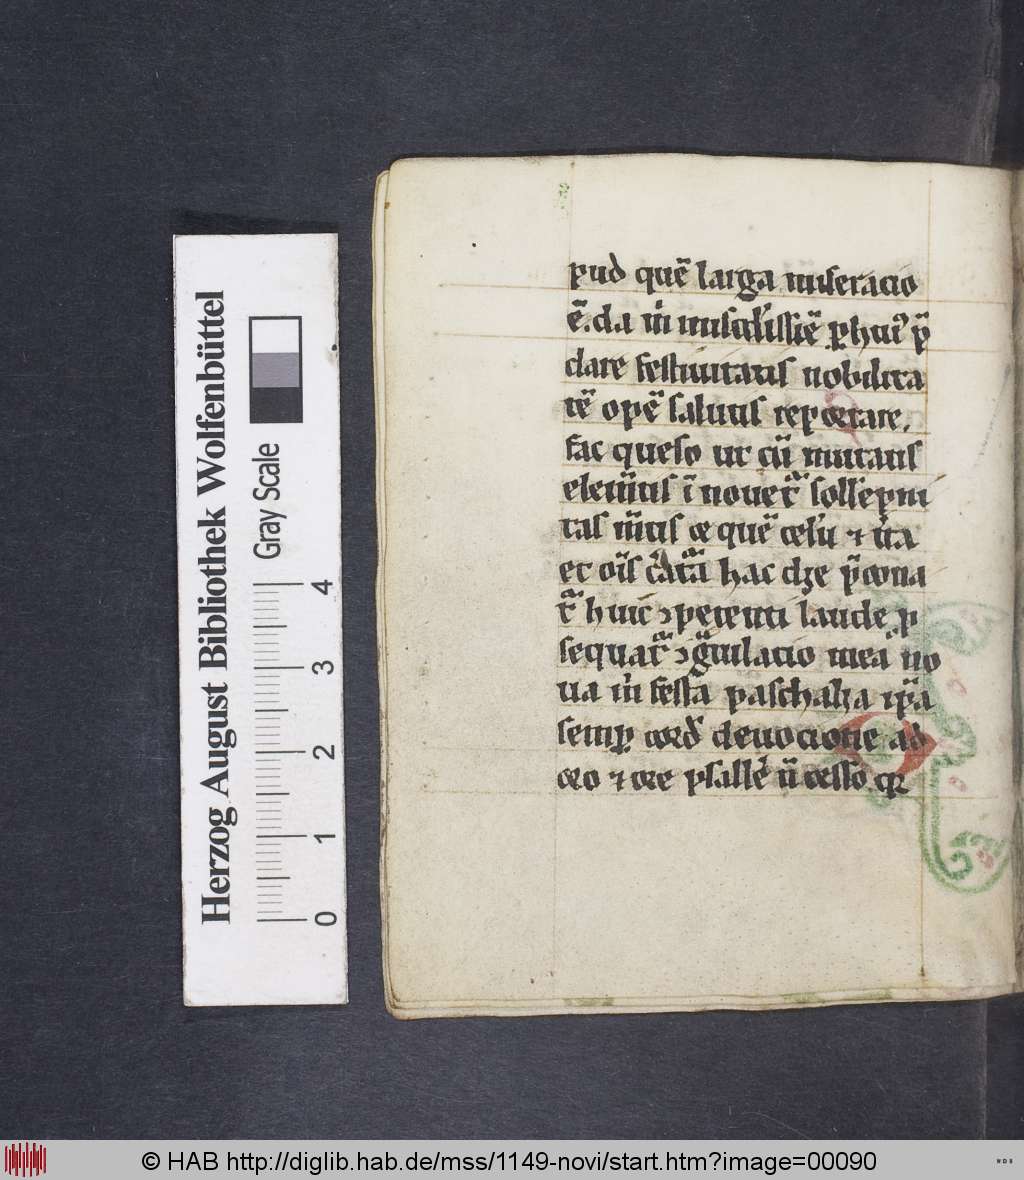 pud quē larga miseracio
ē. da m̄ misᵉdissīe ꝑ huiꝰ p̄
clare festiuitatis nobilita
tē opē salutis repetare,
fac queso ut cū mutatis
elemētis ī nouet᷑ sollēpni
tas m̄tis
et oīs hac die
t᷑ huic ꝯpetenti laude ꝓ
sequat᷑ ꝯgͣtulacio mea no
ua m̄ festa paschalia ipā
semꝑ cord̾ deuocione ad
oro ⁊ ore psallē ū cesso. qr
Herzog August Bibliothek Wolfenbüttel
Gray Scale
0 1 2 3 4
© HAB http://diglib.hab.de/mss/1149-novi/start.htm?image=00090